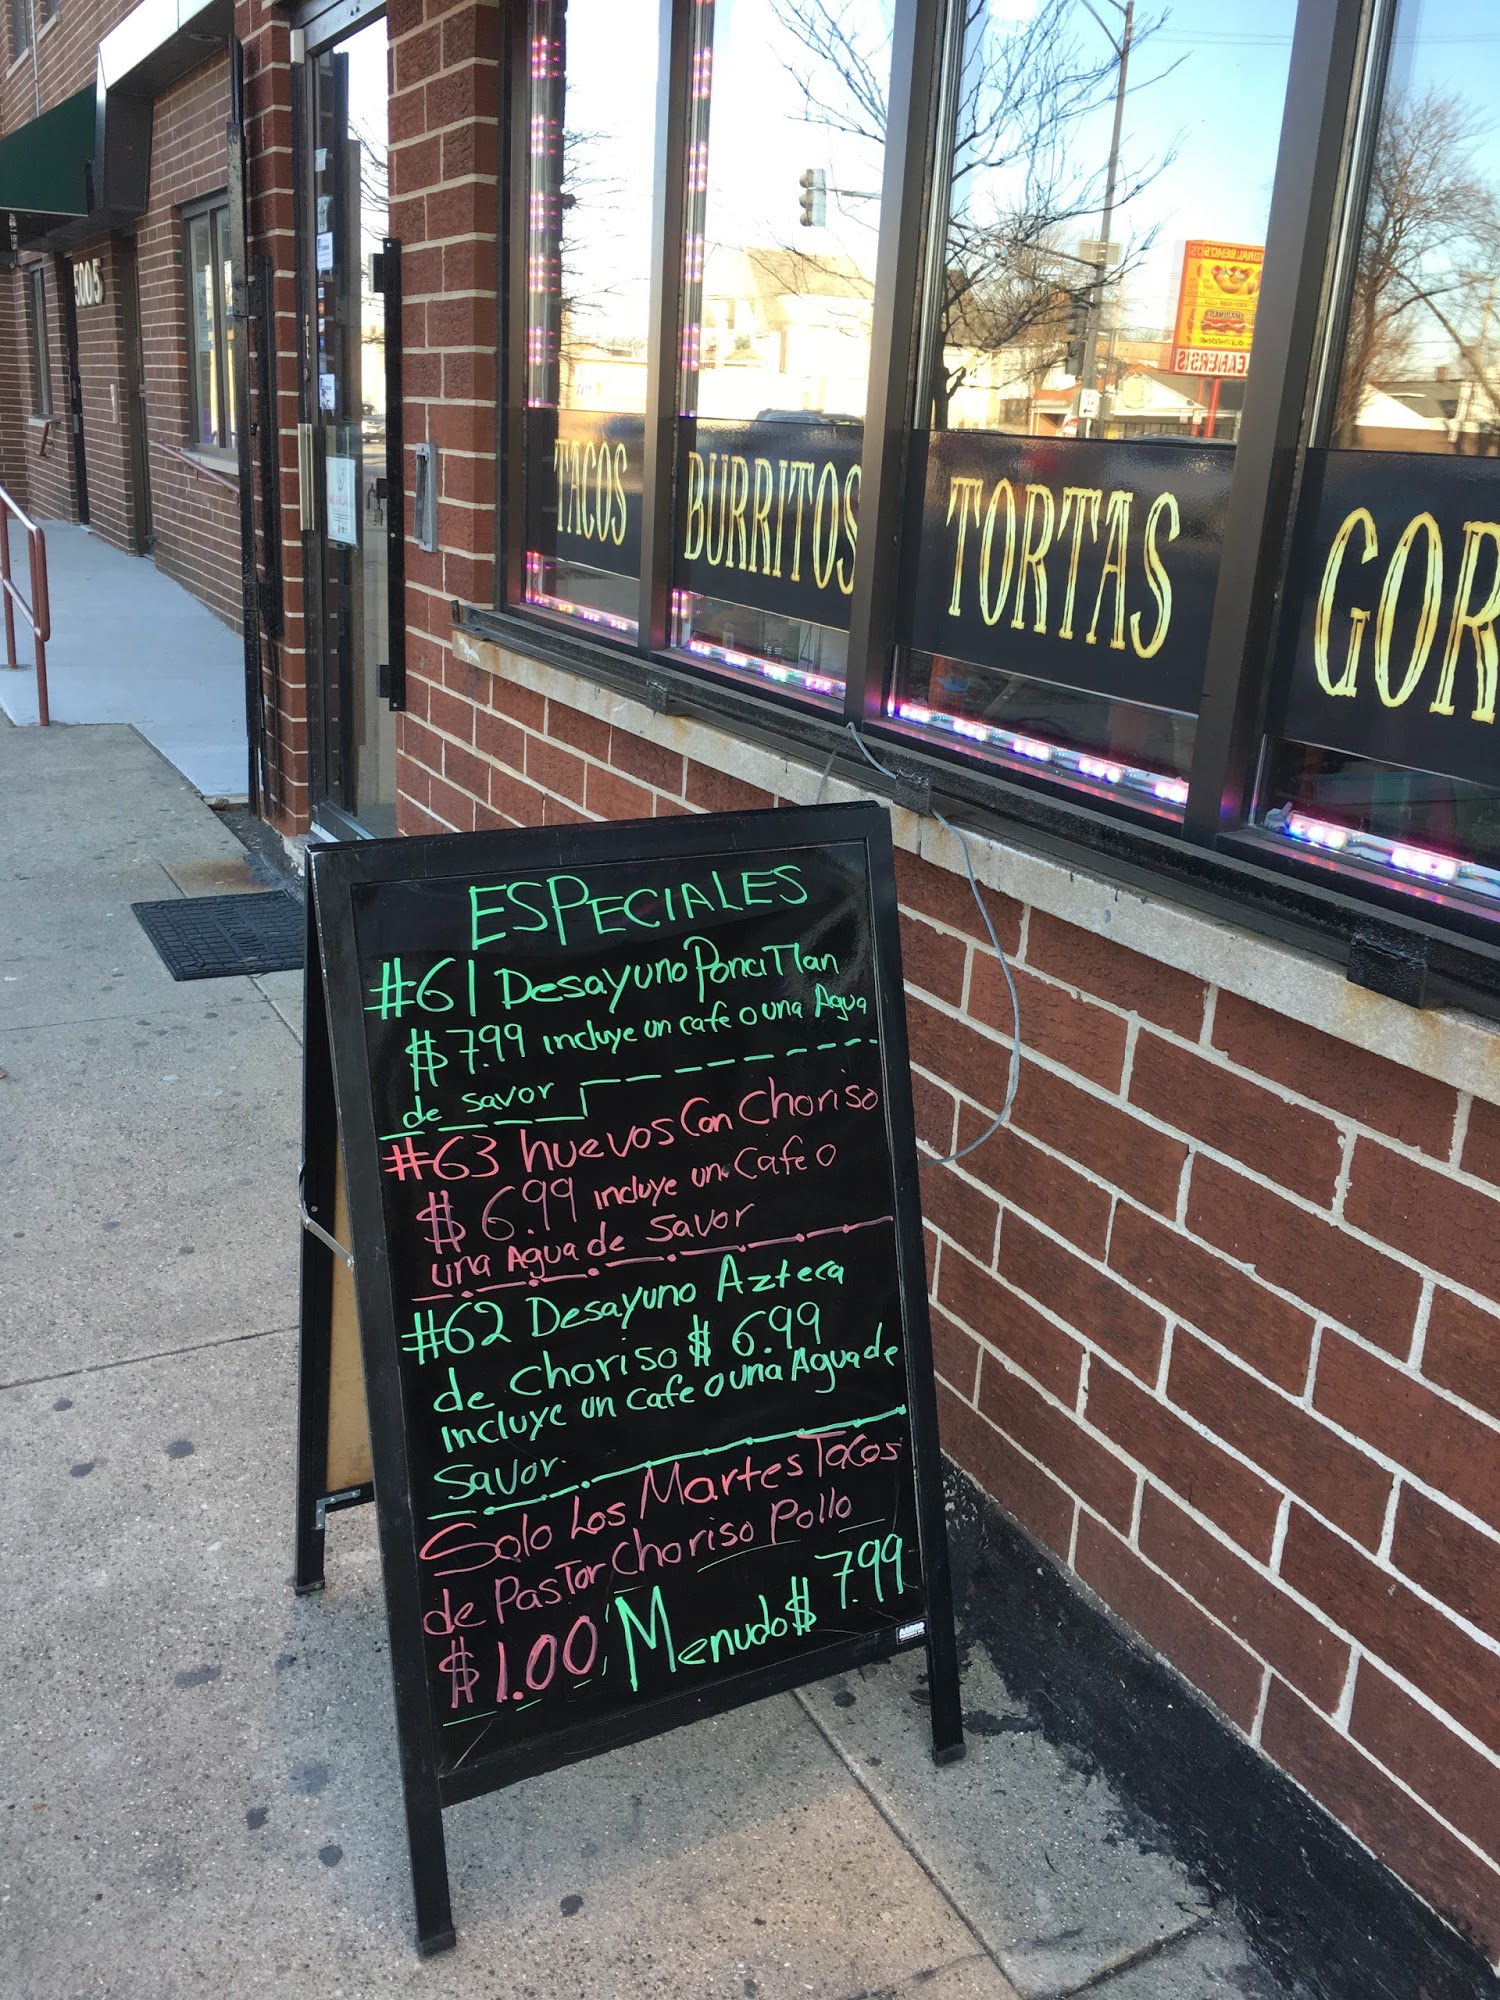 5005
TACOS
BURRITOS
TORTAS
GOR
ESPECIALES
#61 Desayuno PonciTlan
$7.99 incluye un cafe o una Agua
de savor
#63 huevos Con Choriso
$6.99 incluye un Cafe o
una Agua de Savor
#62 Desayuno Azteca
de Choriso $6.99
incluye un cafe o una Agua de
Savor.
Solo Los Martes Tacos
de Pastor Choriso Pollo
$1.00 Menudo $7.99